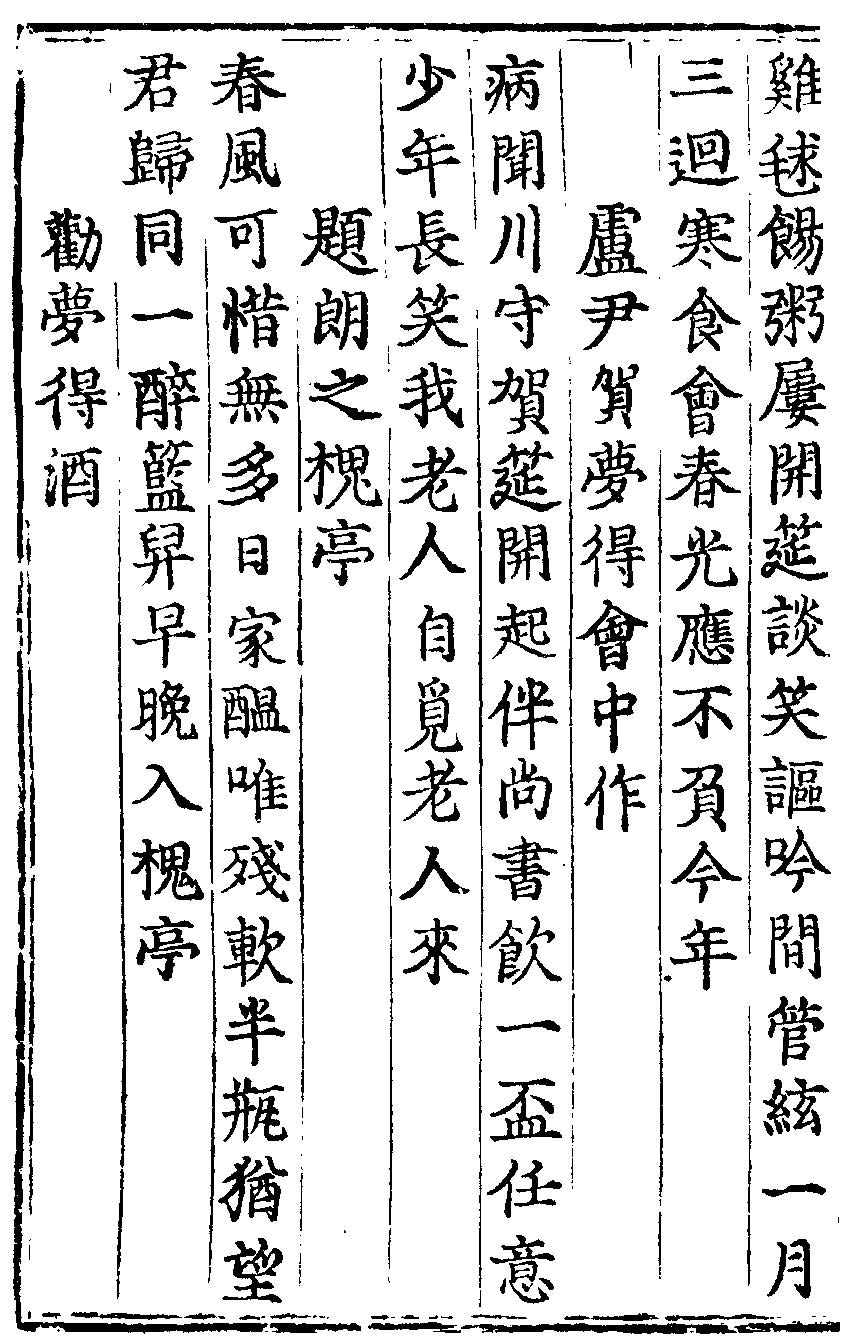 雞毬餳粥屢開筵談笑謳吟間管絃一月
三迴寒食會春光應不負今年
盧尹賀夢得會中作
病聞川守賀筵開起伴尚書飲一盃任意
少年長笑我老人自覓老人來
題朗之槐亭
春風可惜無多日家醖唯殘軟半瓶猶望
君歸同一醉籃舁早晚入槐亭
勸夢得酒